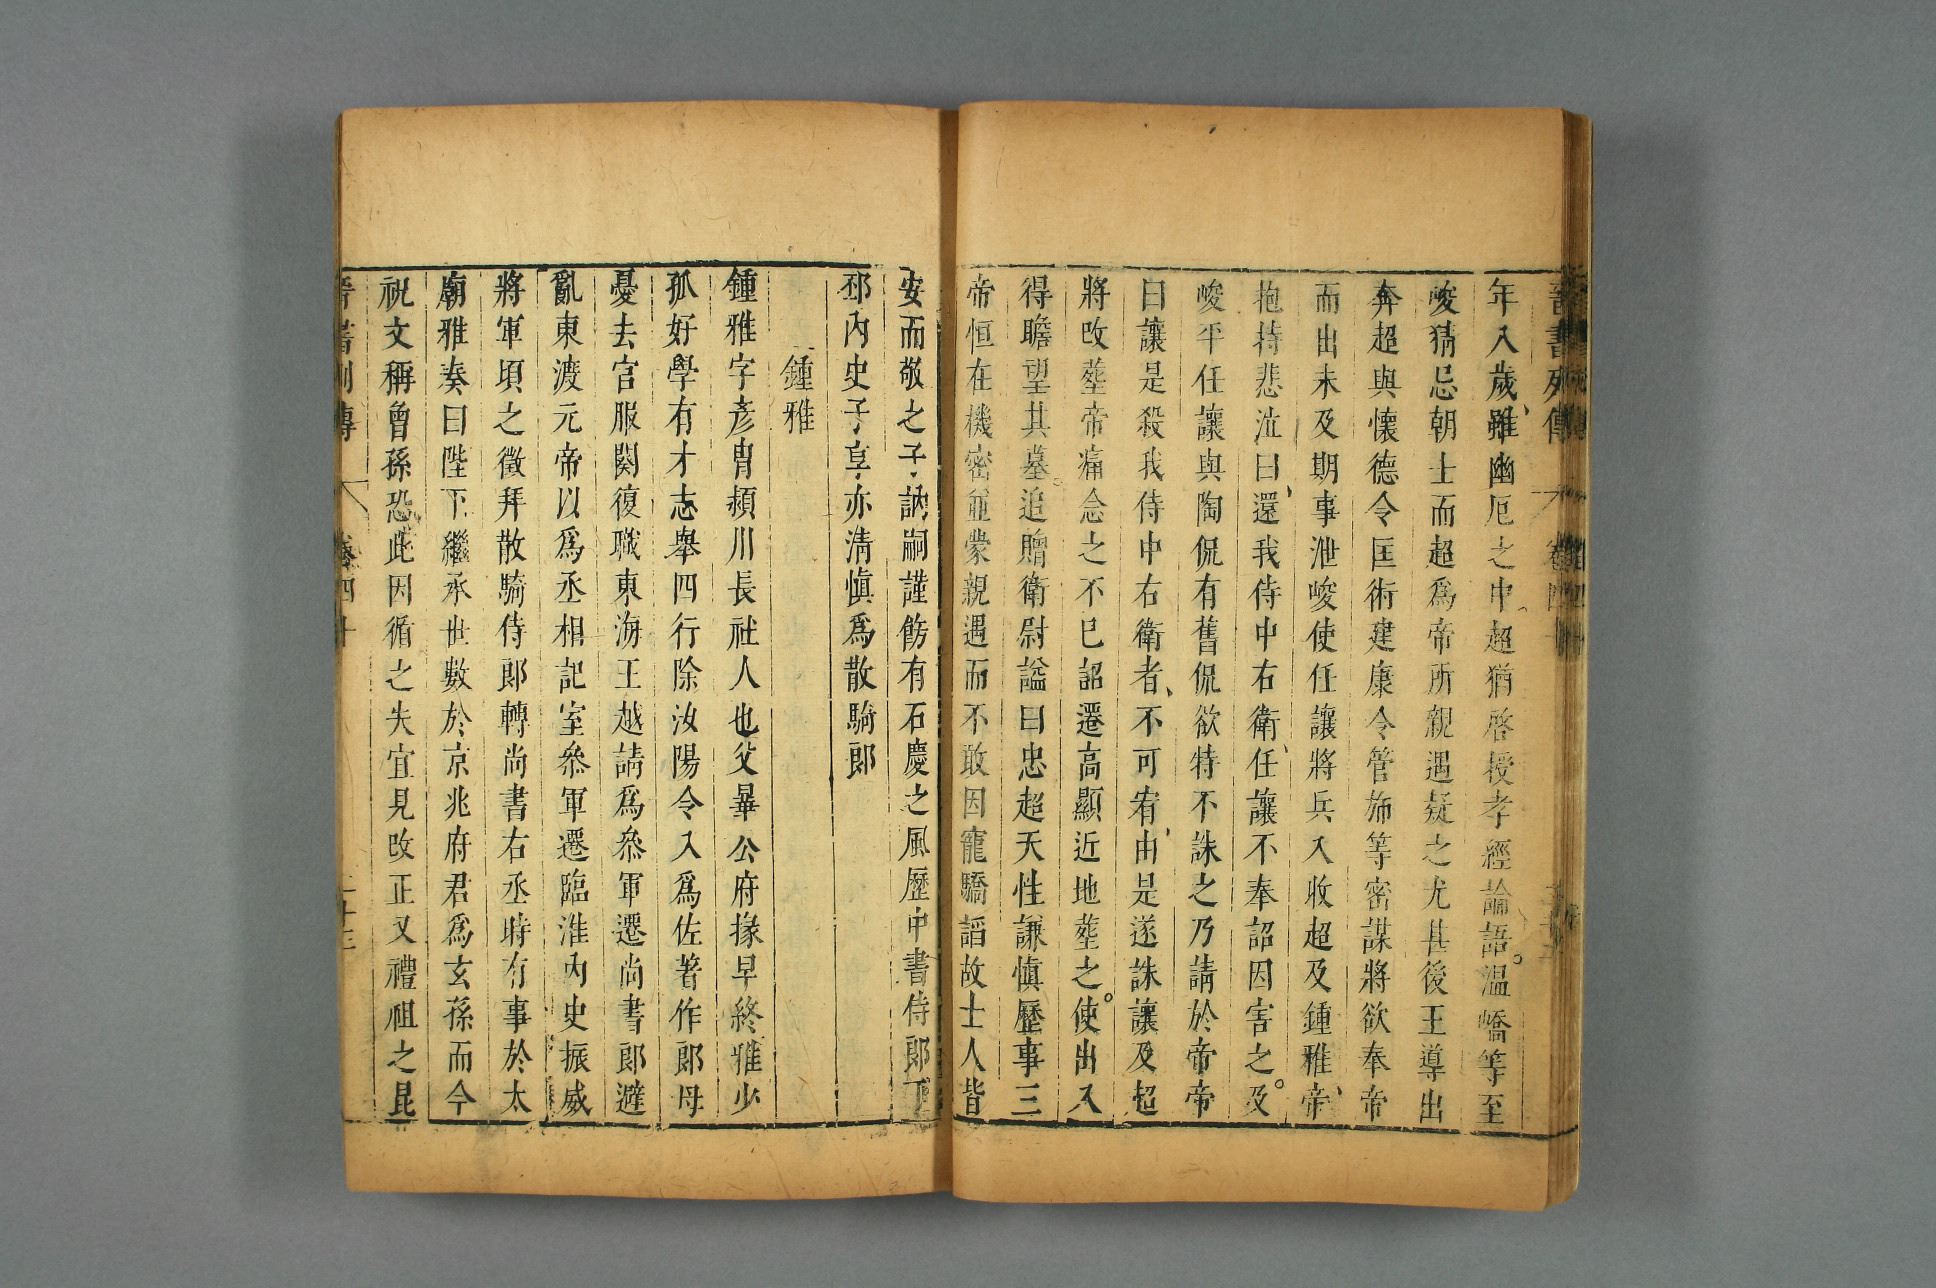 晉書列傳 卷四十
年入歲雖幽厄之中超猶啓授孝經論語溫嶠等至
峻猜忌朝士而超爲帝所親遇疑之尤甚後王導出
奔超與懷德令匡術建康令管斾等密謀將欲奉帝
而出未及期事泄峻使任讓將兵入收超及鍾雅帝
抱持悲泣曰還我侍中右衛任讓不奉詔因害之及
峻平任讓與陶侃有舊侃欲特不誅之乃請於帝帝
曰讓是殺我侍中右衛者不可宥由是遂誅讓及超
將改塟帝痛念之不已詔遷高顯近地塟之使出入
得瞻望其墓追贈衛尉謚曰忠超天性謙愼歷事三
帝恒在機密並蒙親遇而不敢因寵驕謟故士人皆
安而敬之子訥嗣謹飭有石慶之風歷中書侍郎下
邳內史子享亦清愼爲散騎郎
鍾雅
鍾雅字彥冑潁川長社人也父曅公府掾早終雅少
孤好學有才志舉四行除汝陽令入爲佐著作郎母
憂去官服闋復職東海王越請爲參軍遷尚書郎避
亂東渡元帝以爲丞相記室參軍遷臨淮內史振威
將軍頃之徵拜散騎侍郎轉尚書右丞時有事於太
廟雅奏曰陛下繼承世數於京兆府君爲玄孫而今
祝文稱曾孫恐此因循之失宜見改正又禮祖之昆
晉書列傳 卷四十 二十三